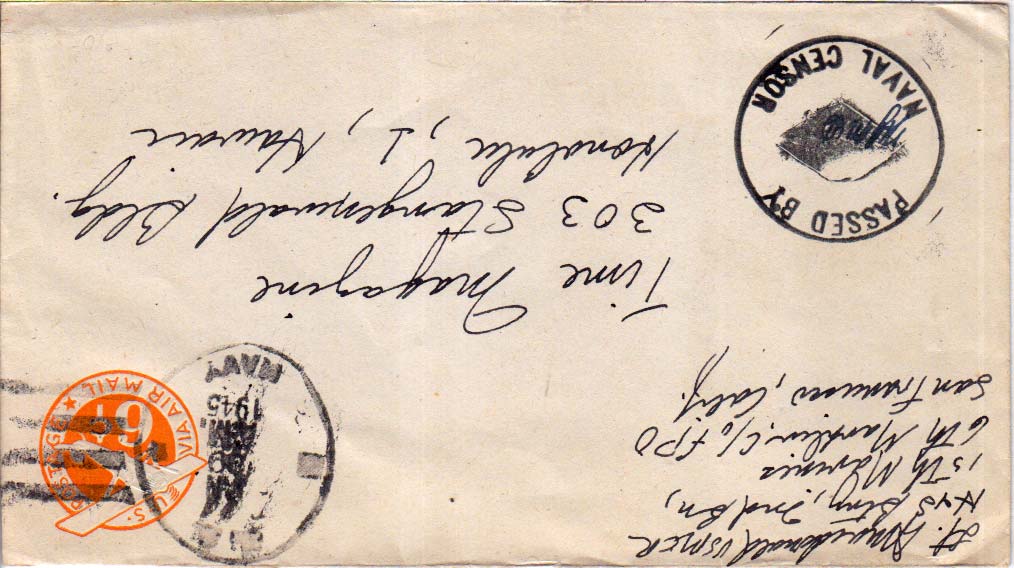 Lt. Macdonald USMCR
H & S Btry, 2nd Bn,
15th Marines
6th Mardiv. C/o FPO
San Francisco, Calif.
NAVY
1945
U.S. POSTAGE
VIA AIR MAIL
6¢
Time Magazine
303 Stangenwald Bldg.
Honolulu, 1, Hawaii
PASSED BY
NAVAL CENSOR